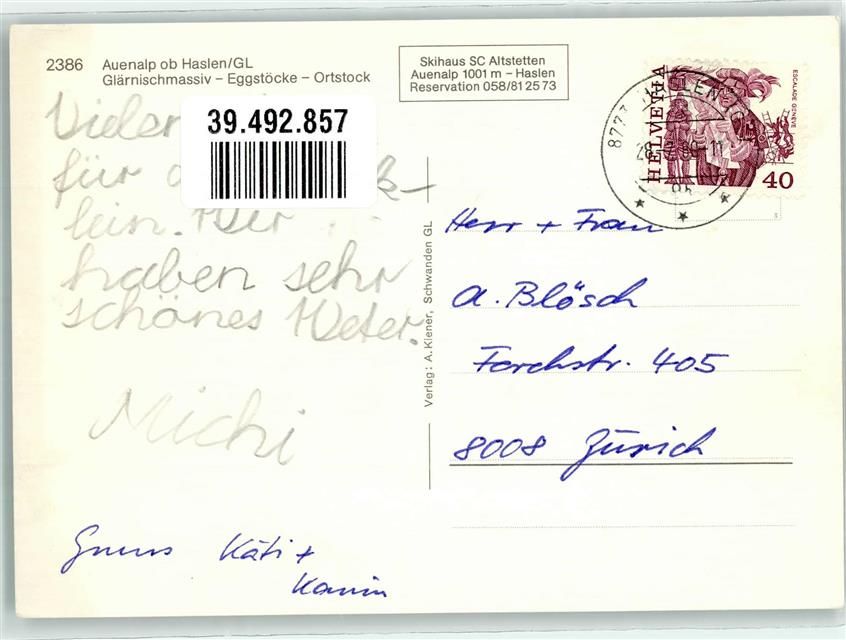 2386 Auenalp ob Haslen/GL
Glärnischmassiv – Eggstöcke – Ortstock
Skihaus SC Altstetten
Auenalp 1001 m – Haslen
Reservation 058/81 25 73
HELVETIA
ESCALADE GENÈVE
40
39.492.857
Vielen
für
lein. Wir
haben sehr
schönes Weter.
Michi
Gruss Käti +
Karin
Verlag: A. Kiener, Schwanden GL
Herr + Frau
A. Blösch
Forchstr. 405
8008 Zürich